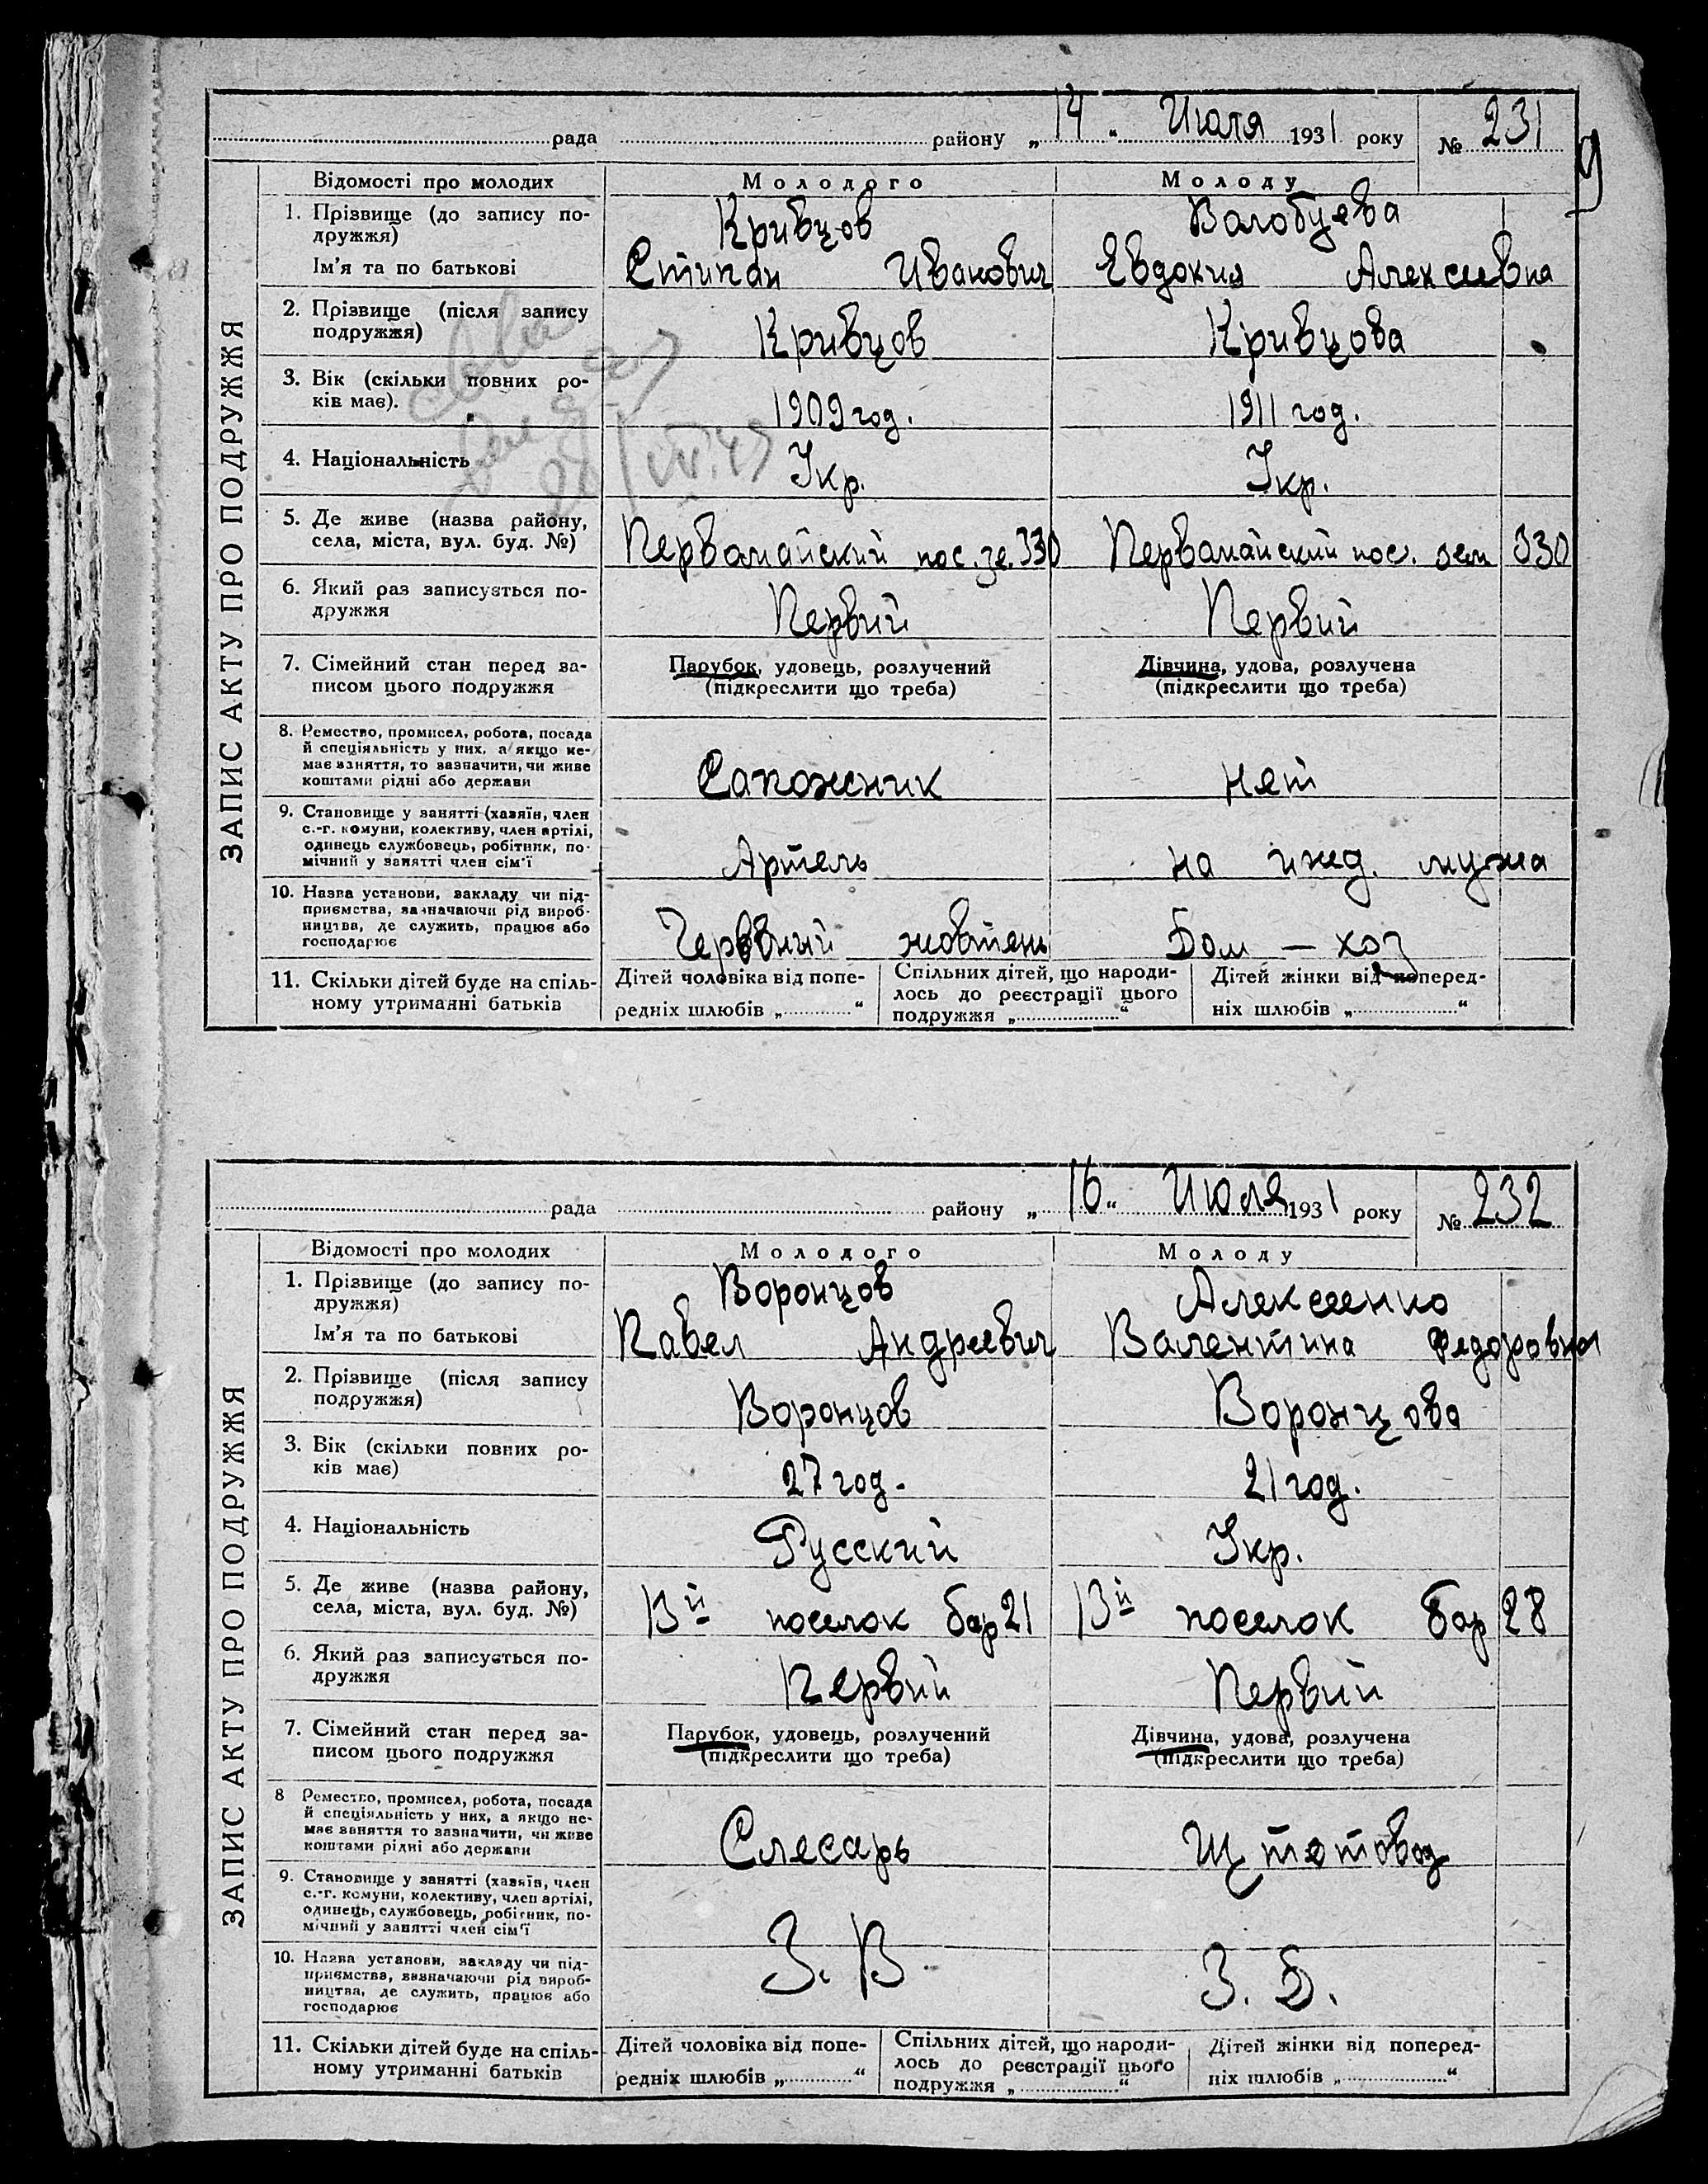 рада району „ 14 " Июля 1931 року № 231
9
ЗАПИС АКТУ ПРО ПОДРУЖЖЯ
Відомості про молодих Молодого Молоду
1. Прізвище (до запису по-
дружжя) Кривцов Валобуева
Ім'я та по батькові Степан Иванович Евдокия Алексеевна
2. Прізвище (після запису
подружжя) Кривцов Кривцова
3. Вік (скільки повних ро-
ків має). 1909 год. 1911 год.
4. Національність Укр. Укр.
5. Де живе (назва району,
села, міста, вул. буд. №) Первамайский пос. зе. 330 Первамайский пос. зем 330
6. Який раз записується по-
дружжя Первий Первий
7. Сімейний стан перед за-
писом цього подружжя
Парубок, удовець, розлучений
(підкреслити що треба)
Дівчина, удова, розлучена
(підкреслити що треба)
8. Ремество, промисел, робота, посада
й спеціяльність у них, а якщо не-
має заняття, то зазначити, чи живе
коштами рідні або держави Сапожник нет
9. Становище у занятті (хазяїн, член
с.-г. комуни, колективу, член артілі,
одинець службовець, робітник, по-
мічний у занятті член сім'ї Артель на ижд. мужа
10. Назва установи, закладу чи під-
приємства, зазначаючи рід вироб-
ництва, де служить, працює або
господарює Червоный жовтень Дом — хоз
11. Скільки дітей буде на спіль-
ному утриманні батьків
Дітей чоловіка від попе-
редніх шлюбів „ “
Спільних дітей, що народи-
лось до реєстрації цього
подружжя „ “
Дітей жінки від поперед-
ніх шлюбів „ “
рада району „ 16 “ Июля 1931 року № 232
ЗАПИС АКТУ ПРО ПОДРУЖЖЯ
Відомості про молодих Молодого Молоду
1. Прізвище (до запису по-
дружжя) Воронцов Алексеенко
Ім'я та по батькові Павел Андреевич Валентина Федоровна
2. Прізвище (після запису
подружжя) Воронцов Воронцова
3. Вік (скільки повних ро-
ків має) 27 год. 21 год.
4. Національність Русский Укр.
5. Де живе (назва району,
села, міста, вул. буд. №) 13й поселок бар 21 13й поселок бар 28
6. Який раз записується по-
дружжя Первий Первий
7. Сімейний стан перед за-
писом цього подружжя
Парубок, удовець, розлучений
(підкреслити що треба)
Дівчина, удова, розлучена
(підкреслити що треба)
8 Ремество, промисел, робота, посада
й спеціяльність у них, а якщо не-
має заняття то зазначити, чи живе
коштами рідні або держави Слесарь Щетовод
9. Становище у занятті (хазяїн, член
с.-г. комуни, колективу, член артілі,
одинець, службовець, робітник, по-
мічний у занятті член сім'ї
10. Назва установи, закладу чи під-
приємства, зазначаючи рід вироб-
ництва, де служить, працює або
господарює З. В. З. Д.
11. Скільки дітей буде на спіль-
ному утриманні батьків
Дітей чоловіка від попе-
редніх шлюбів „ “
Спільних дітей, що народи-
лось до реєстрації цього
подружжя „ “
Дітей жінки від поперед-
ніх шлюбів „ “